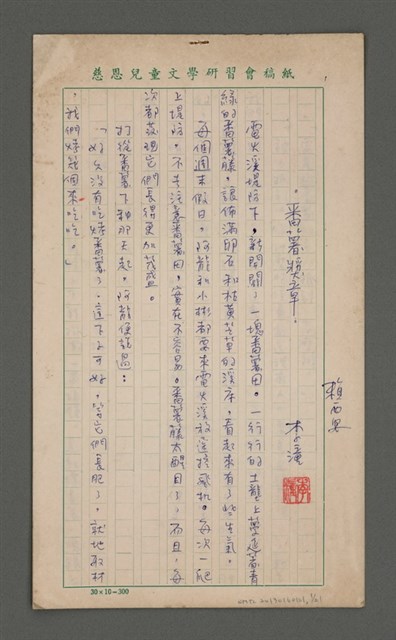 慈恩兒童文學研習會稿紙
賴西安
。番薯獎章。
李潼
電火溪堤防下,新開闢了一塊番薯田。一行行的土壟上蔓延著青
綠的番薯藤,讓佈滿卵石和枯黃芒草的溪床,看起來有了些生氣。
每個週末假日,阿龍和小彬都要來電火溪放遙控飛机。每次一爬
上堤防,不去注意番薯田,實在不容易。番薯藤太醒目了,而且,每
次都發現它們長得更加茂盛。
打從番薯下勒那天起,阿龍便說過:
「好久沒有吃烤番薯了,這下子可好,等它們長肥了,就地取材
,我們烤幾個來吃吃。」
30×10=300